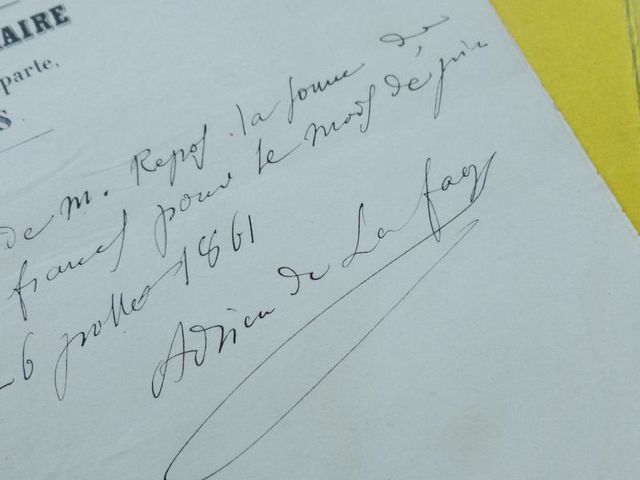 AIRE
parte,
S
de M. Repos la somme de
francs pour le mois de juin
6 juillet 1861
Adrien de La fage